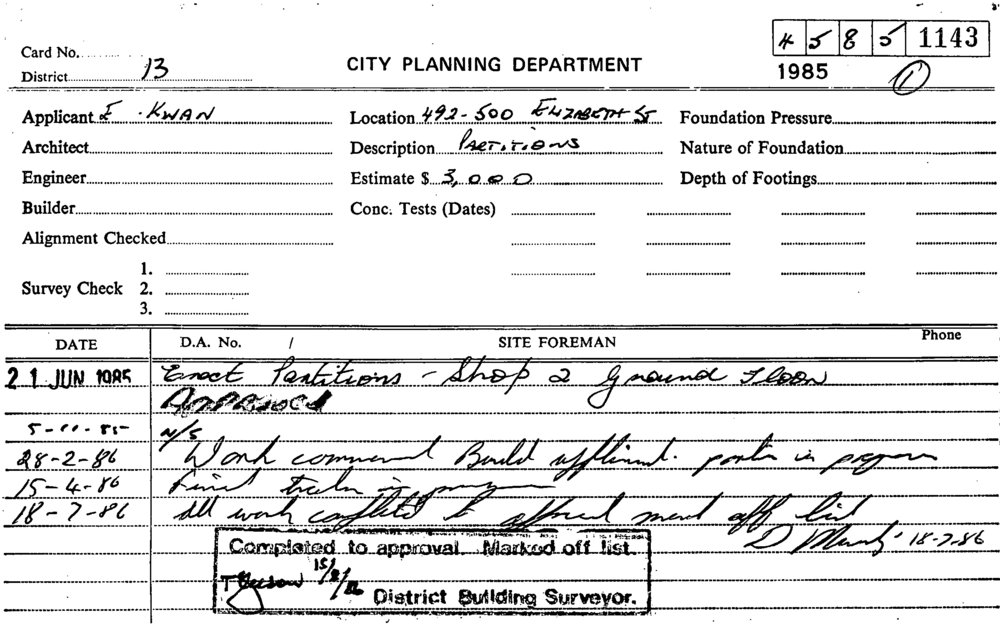 4 5 8 5 1143
Card No.
CITY PLANNING DEPARTMENT
1985 1
District 13
Applicant E. KWAN Location 492-500 ELIZABETH ST Foundation Pressure
Architect Description PARTITIONS Nature of Foundation
Engineer Estimate $ 3,000 Depth of Footings
Builder Conc. Tests (Dates)
Alignment Checked
1.
Survey Check 2.
3.
DATE D.A. No. / SITE FOREMAN Phone
21 JUN 1985 Erect Partitions - Shop 2 Ground Floor
APPROVED
5-11-85 N/S
28-2-86 Work commenced Build in progress
15-4-86 in progress
18-7-86 All work completed to approval off list
D 18-7-86
Completed to approval. Marked off list.
15/8/86
District Building Surveyor.